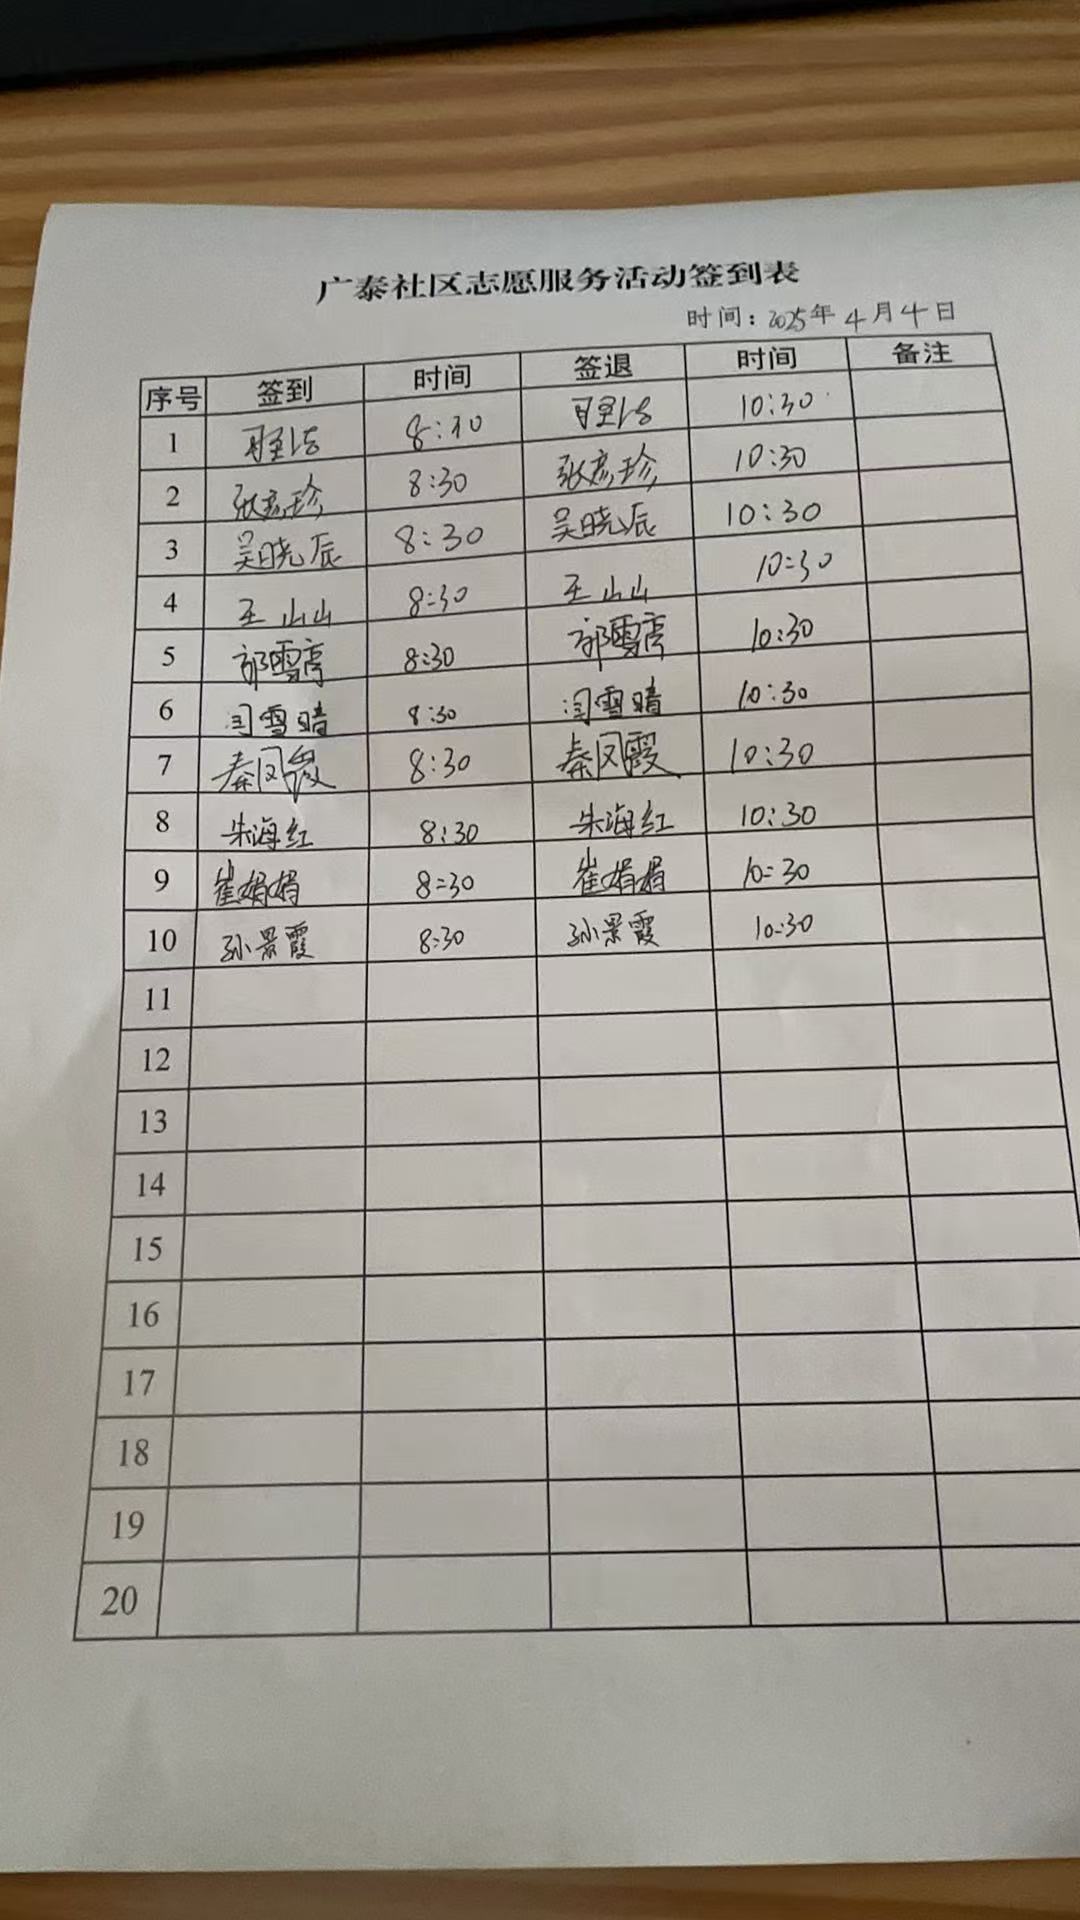 广泰社区志愿服务活动签到表
时间：2025年4月4日
序号 签到 时间 签退 时间 备注
1 8:30 10:30
2 张彦珍 8:30 张彦珍 10:30
3 吴晓辰 8:30 吴晓辰 10:30
4 王山山 8:30 王山山 10:30
5 郭雪亭 8:30 郭雪亭 10:30
6 闫雪晴 8:30 闫雪晴 10:30
7 秦凤霞 8:30 秦凤霞 10:30
8 朱海红 8:30 朱海红 10:30
9 崔娟娟 8:30 崔娟娟 10:30
10 孙景霞 8:30 孙景霞 10:30
11
12
13
14
15
16
17
18
19
20